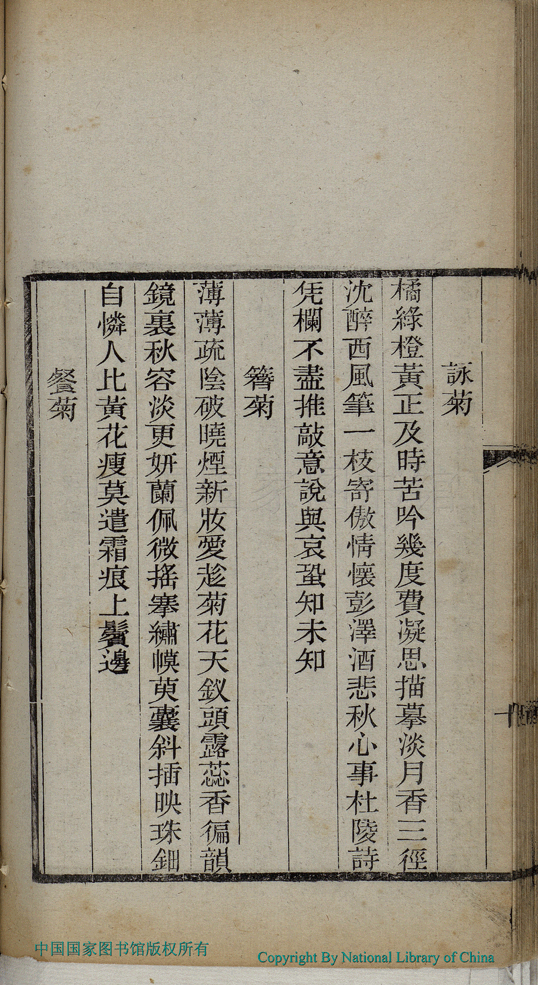 詠菊
橘綠橙黃正及時苦吟幾度費凝思描摹淡月香三徑
沈醉西風筆一枝寄傲情懷彭澤酒悲秋心事杜陵詩
凭欄不盡推敲意說與哀蛩知未知
簪菊
薄薄疏陰破曉煙新妝愛趁菊花天釵頭露蕊香徧韻
鏡裏秋容淡更妍蘭佩微搖搴繡幙萸囊斜插映珠鈿
自憐人比黃花瘦莫遣霜痕上鬢邊
餐菊
中国国家图书馆版权所有
Copyright By National Library of China